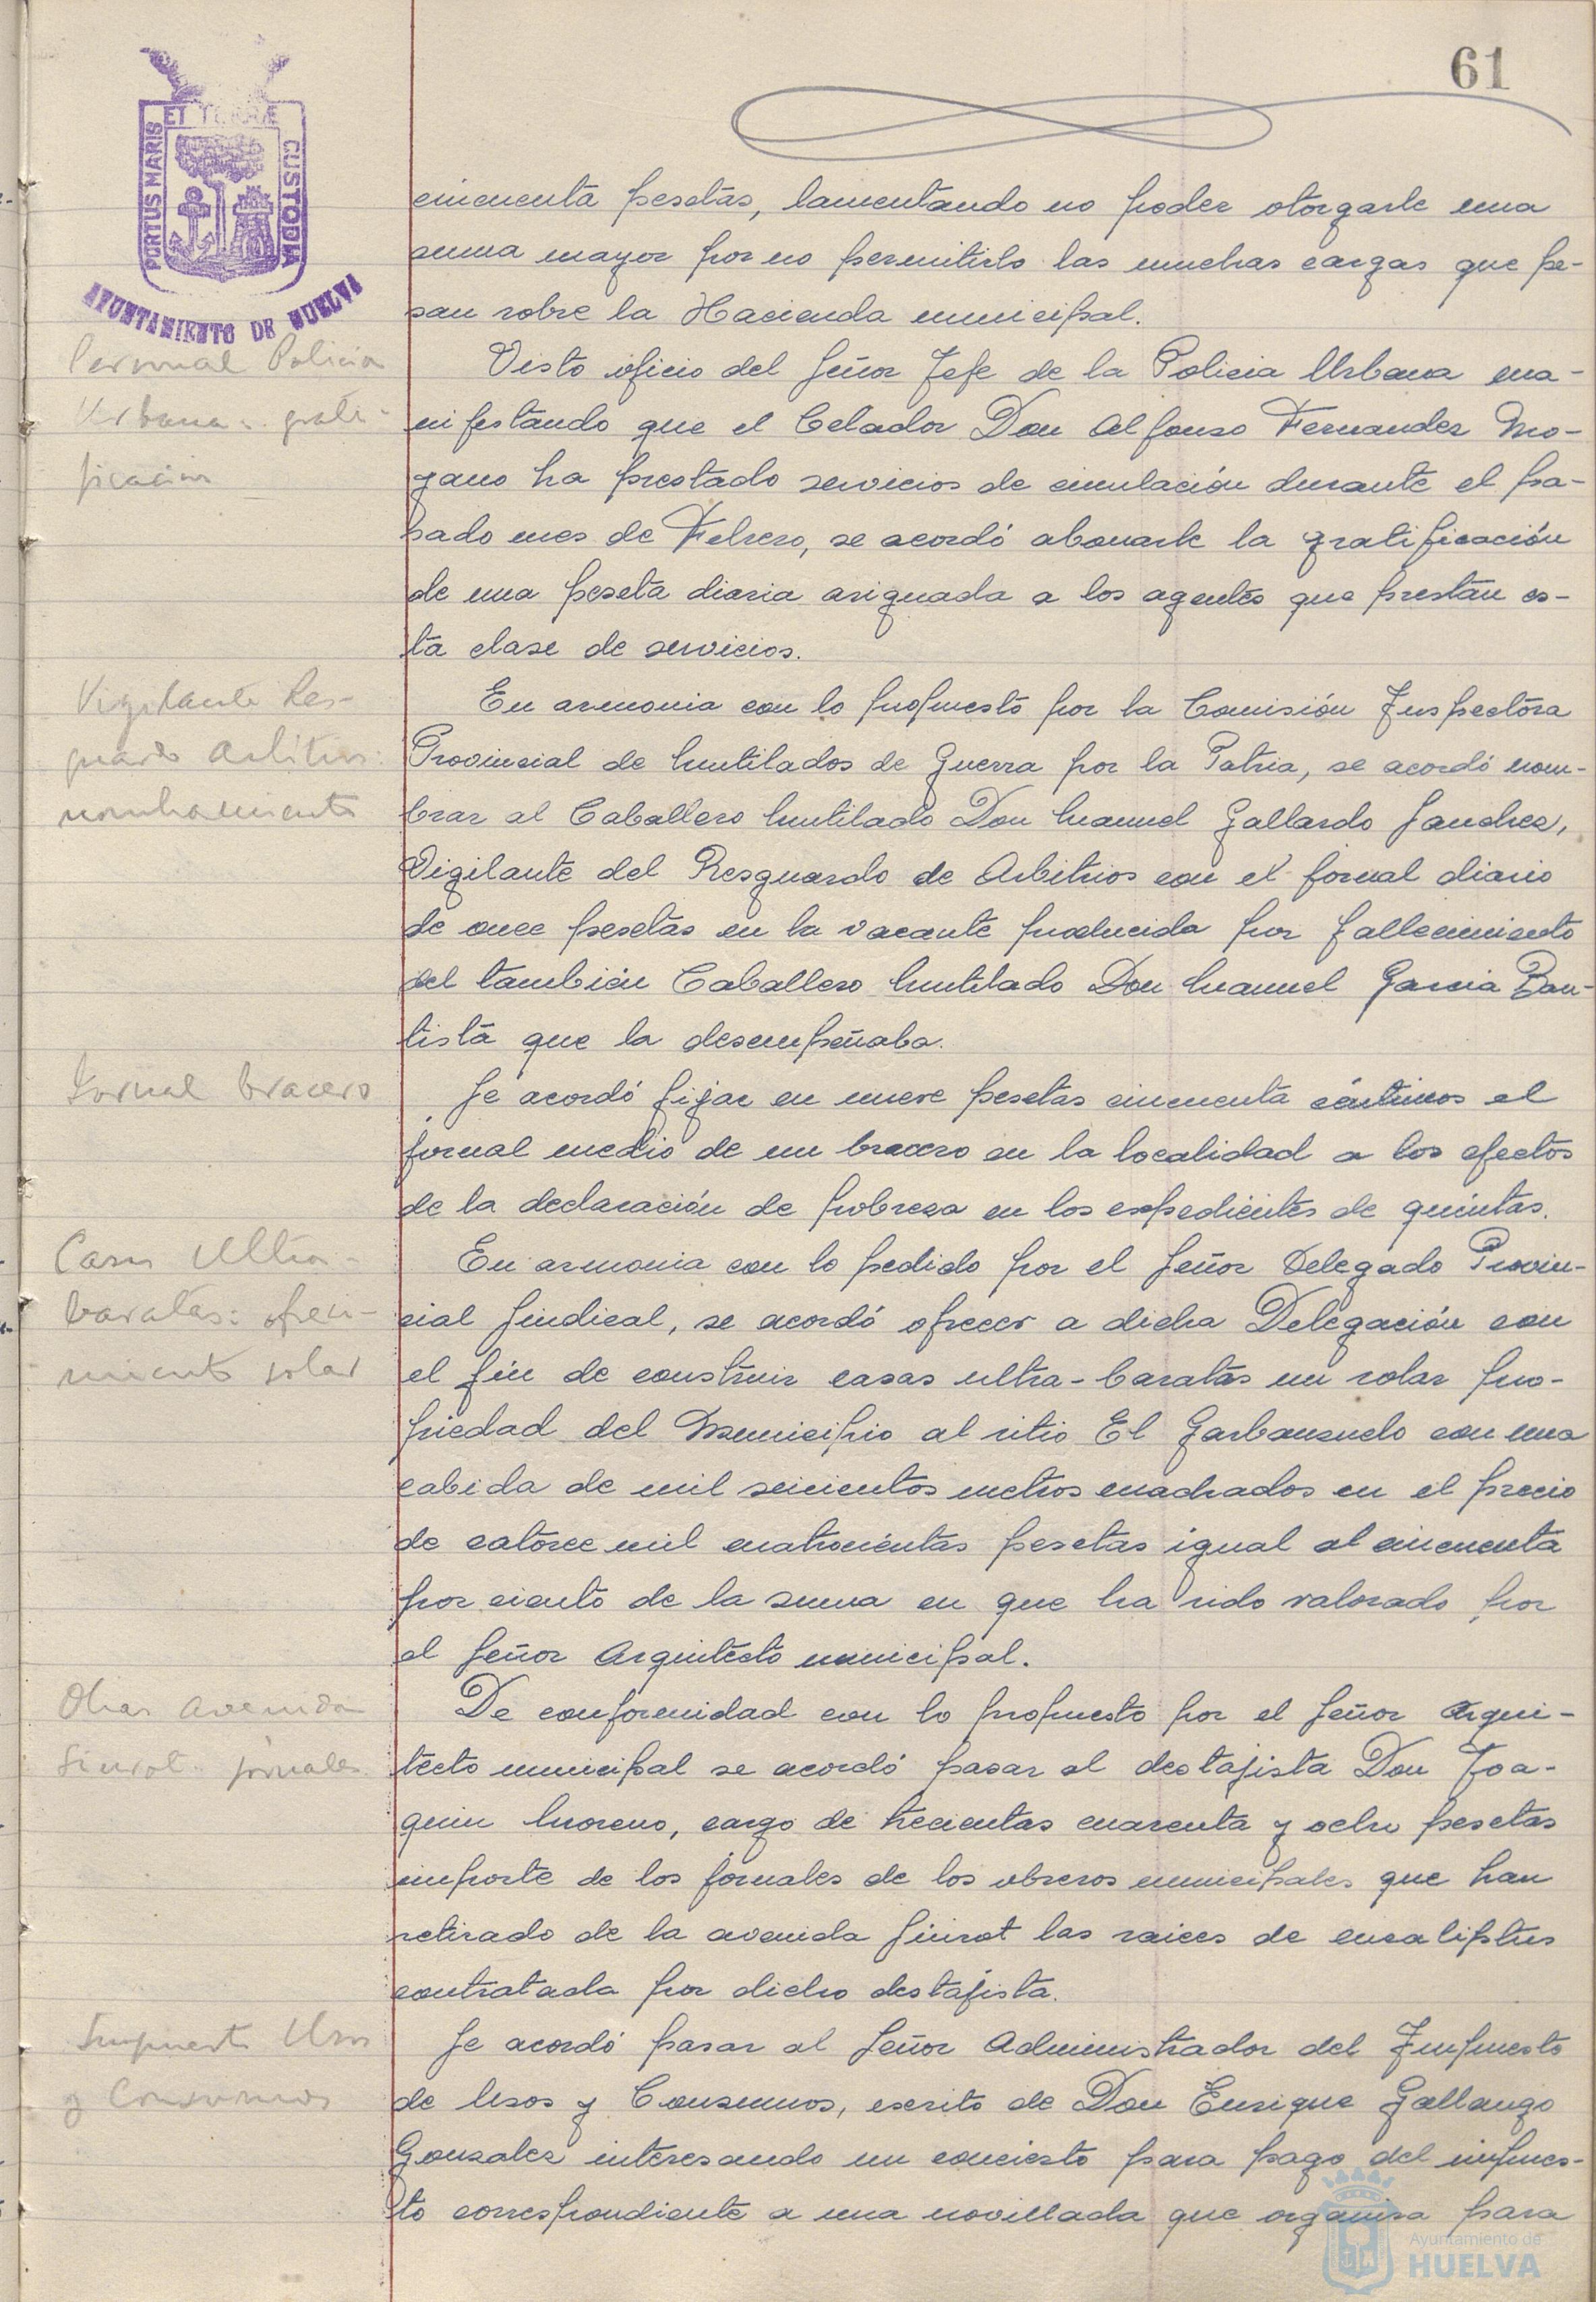 61
PORTUS MARIS ET TERRAE CUSTODIA
AYUNTAMIENTO DE HUELVA
cincuenta pesetas, lamentando no poder otorgarle una
suma mayor por no permitirlo las muchas cargas que pe-
san sobre la Hacienda municipal.
Personal Policia
Urbana: grati-
ficación
Visto oficio del Señor Jefe de la Policia Urbana ma-
nifestando que el Celador Don Alfonso Fernandez Mo-
yano ha prestado servicios de circulación durante el pa-
sado mes de Febrero, se acordó abonarle la gratificación
de una peseta diaria asignada a los agentes que prestan es-
ta clase de servicios.
Vigilante Res-
guardo Arbitrios:
nombramiento
En armonia con lo propuesto por la Comisión Inspectora
Provincial de Mutilados de Guerra por la Patria, se acordó nom-
brar al Caballero Mutilado Don Manuel Gallardo Sanchez,
Vigilante del Resguardo de Arbitrios con el jornal diario
de once pesetas en la vacante producida por fallecimiento
del también Caballero Mutilado Don Manuel Garcia Bau-
tista que la desempeñaba.
Jornal bracero
Se acordó fijar en nueve pesetas cincuenta céntimos el
jornal medio de un bracero en la localidad a los efectos
de la declaración de pobreza en los expedientes de quintas.
Casas Ultra-
baratas: ofreci-
miento solar
En armonia con lo pedido por el Señor Delegado Provin-
cial Sindical, se acordó ofrecer a dicha Delegación con
el fin de construir casas ultra-baratas un solar pro-
piedad del Municipio al sitio El Garbanzuelo con una
cabida de mil seicientos metros cuadrados en el precio
de catorce mil cuatrocientas pesetas igual al cincuenta
por ciento de la suma en que ha sido valorado por
el Señor Arquitecto municipal.
Obras Avenida
Siurot: jornales
De conformidad con lo propuesto por el Señor Arqui-
tecto municipal se acordó pasar al destajista Don Joa-
quin Moreno, cargo de trecientas cuarenta y ocho pesetas
importe de los jornales de los obreros municipales que han
retirado de la avenida Siurot las raices de eucaliptus
contratada por dicho destajista.
Impuesto Usos
y Consumos
Se acordó pasar al Señor Administrador del Impuesto
de Usos y Consumos, escrito de Don Enrique Gallango
Gonzalez interesando un concierto para pago del impues-
to correspondiente a una novillada que organiza para
Ayuntamiento de
HUELVA